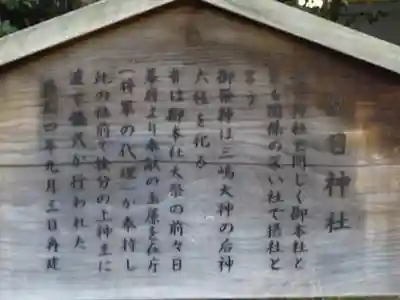 日神社
神社と同じく御本社と
も関係の深い社で摂社と
言う
御祭神は三嶋大神の后神
六柱を祀る
昔は御本社大祭の前々日
幕府より奉献の玉廉を在庁
(将軍の代理)が奉行し
此の社前で検分の上神主に
渡す儀式が行われた
四年九月三日再建